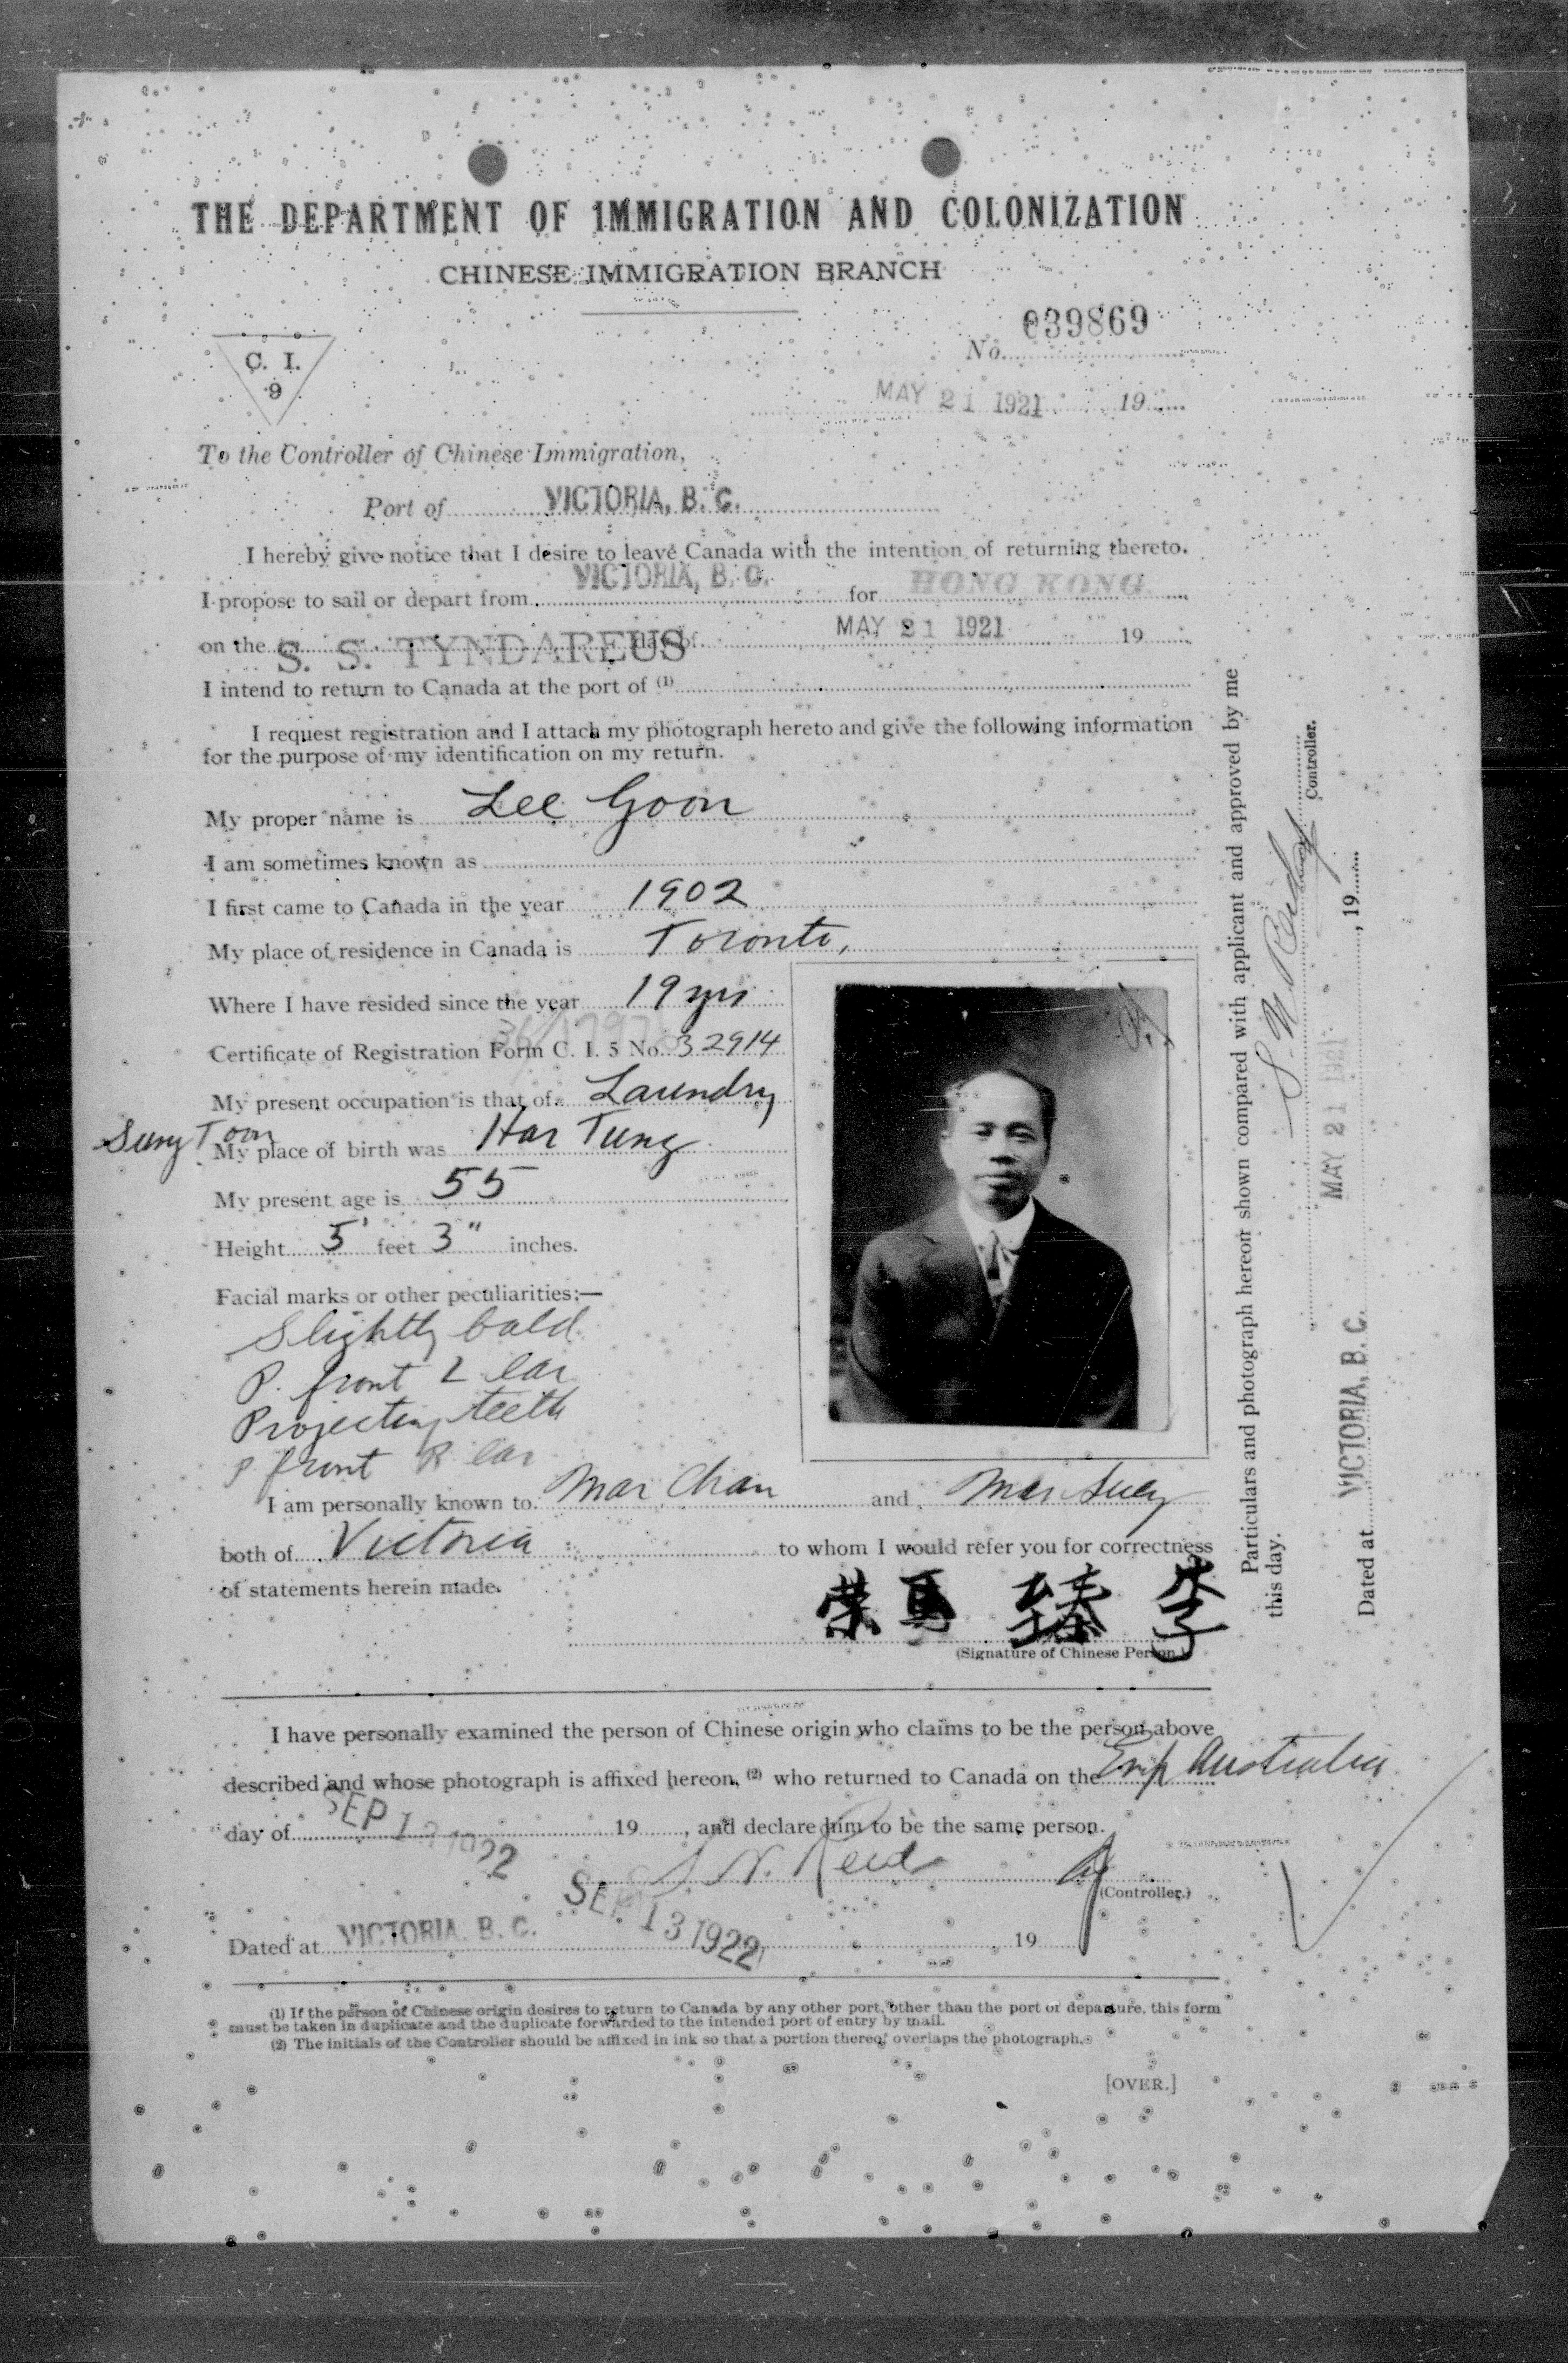 THE DEPARTMENT OF IMMIGRATION AND COLONIZATION
CHINESE IMMIGRATION BRANCH
C. I.
9
No. 039869
MAY 21 1921 19
To the Controller of Chinese Immigration,
Port of VICTORIA, B. C.
I hereby give notice that I desire to leave Canada with the intention of returning thereto.
I propose to sail or depart from VICTORIA, B. C. for HONG KONG
on the S. S. TYNDAREUS day of MAY 21 1921 19
I intend to return to Canada at the port of (1)
I request registration and I attach my photograph hereto and give the following information
for the purpose of my identification on my return.
My proper name is Lee Goon
I am sometimes known as
I first came to Canada in the year 1902
My place of residence in Canada is Toronto,
Where I have resided since the year 19 yrs
Certificate of Registration Form C. I. 5 No. 32914
My present occupation is that of Laundry
Suny Toon My place of birth was Har Tung
My present age is 55
Height 5' feet 3" inches.
Facial marks or other peculiarities:—
Slightly bald
P. front L ear
Projecting teeth
P front R ear
I am personally known to Mar Chan and Mar Suey
both of Victoria to whom I would refer you for correctness
of statements herein made.
荣 馬 臻 李
(Signature of Chinese Person.)
I have personally examined the person of Chinese origin who claims to be the person above
described and whose photograph is affixed hereon, (2) who returned to Canada on the Emp Australia
day of SEP 13 1922 19 , and declare him to be the same person.
S. N. Reid
(Controller.)
Dated at VICTORIA. B. C. SEP 13 1922 19
(1) If the person of Chinese origin desires to return to Canada by any other port, other than the port of departure, this form
must be taken in duplicate and the duplicate forwarded to the intended port of entry by mail.
(2) The initials of the Controller should be affixed in ink so that a portion thereof overlaps the photograph.
[OVER.]
Particulars and photograph hereon shown compared with applicant and approved by me
this day.
S. N. Reid
Controller.
Dated at VICTORIA, B. C. MAY 21 1921 , 19